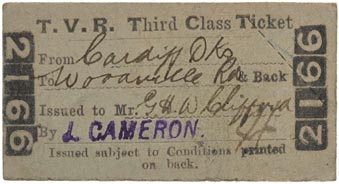 T. V. R. Third Class Ticket
From Cardiff Dks
To Woodville Rd & Back
Issued to Mr. G. H. W. Clifford
By J. CAMERON.
Issued subject to Conditions printed
on back.
2166
2166